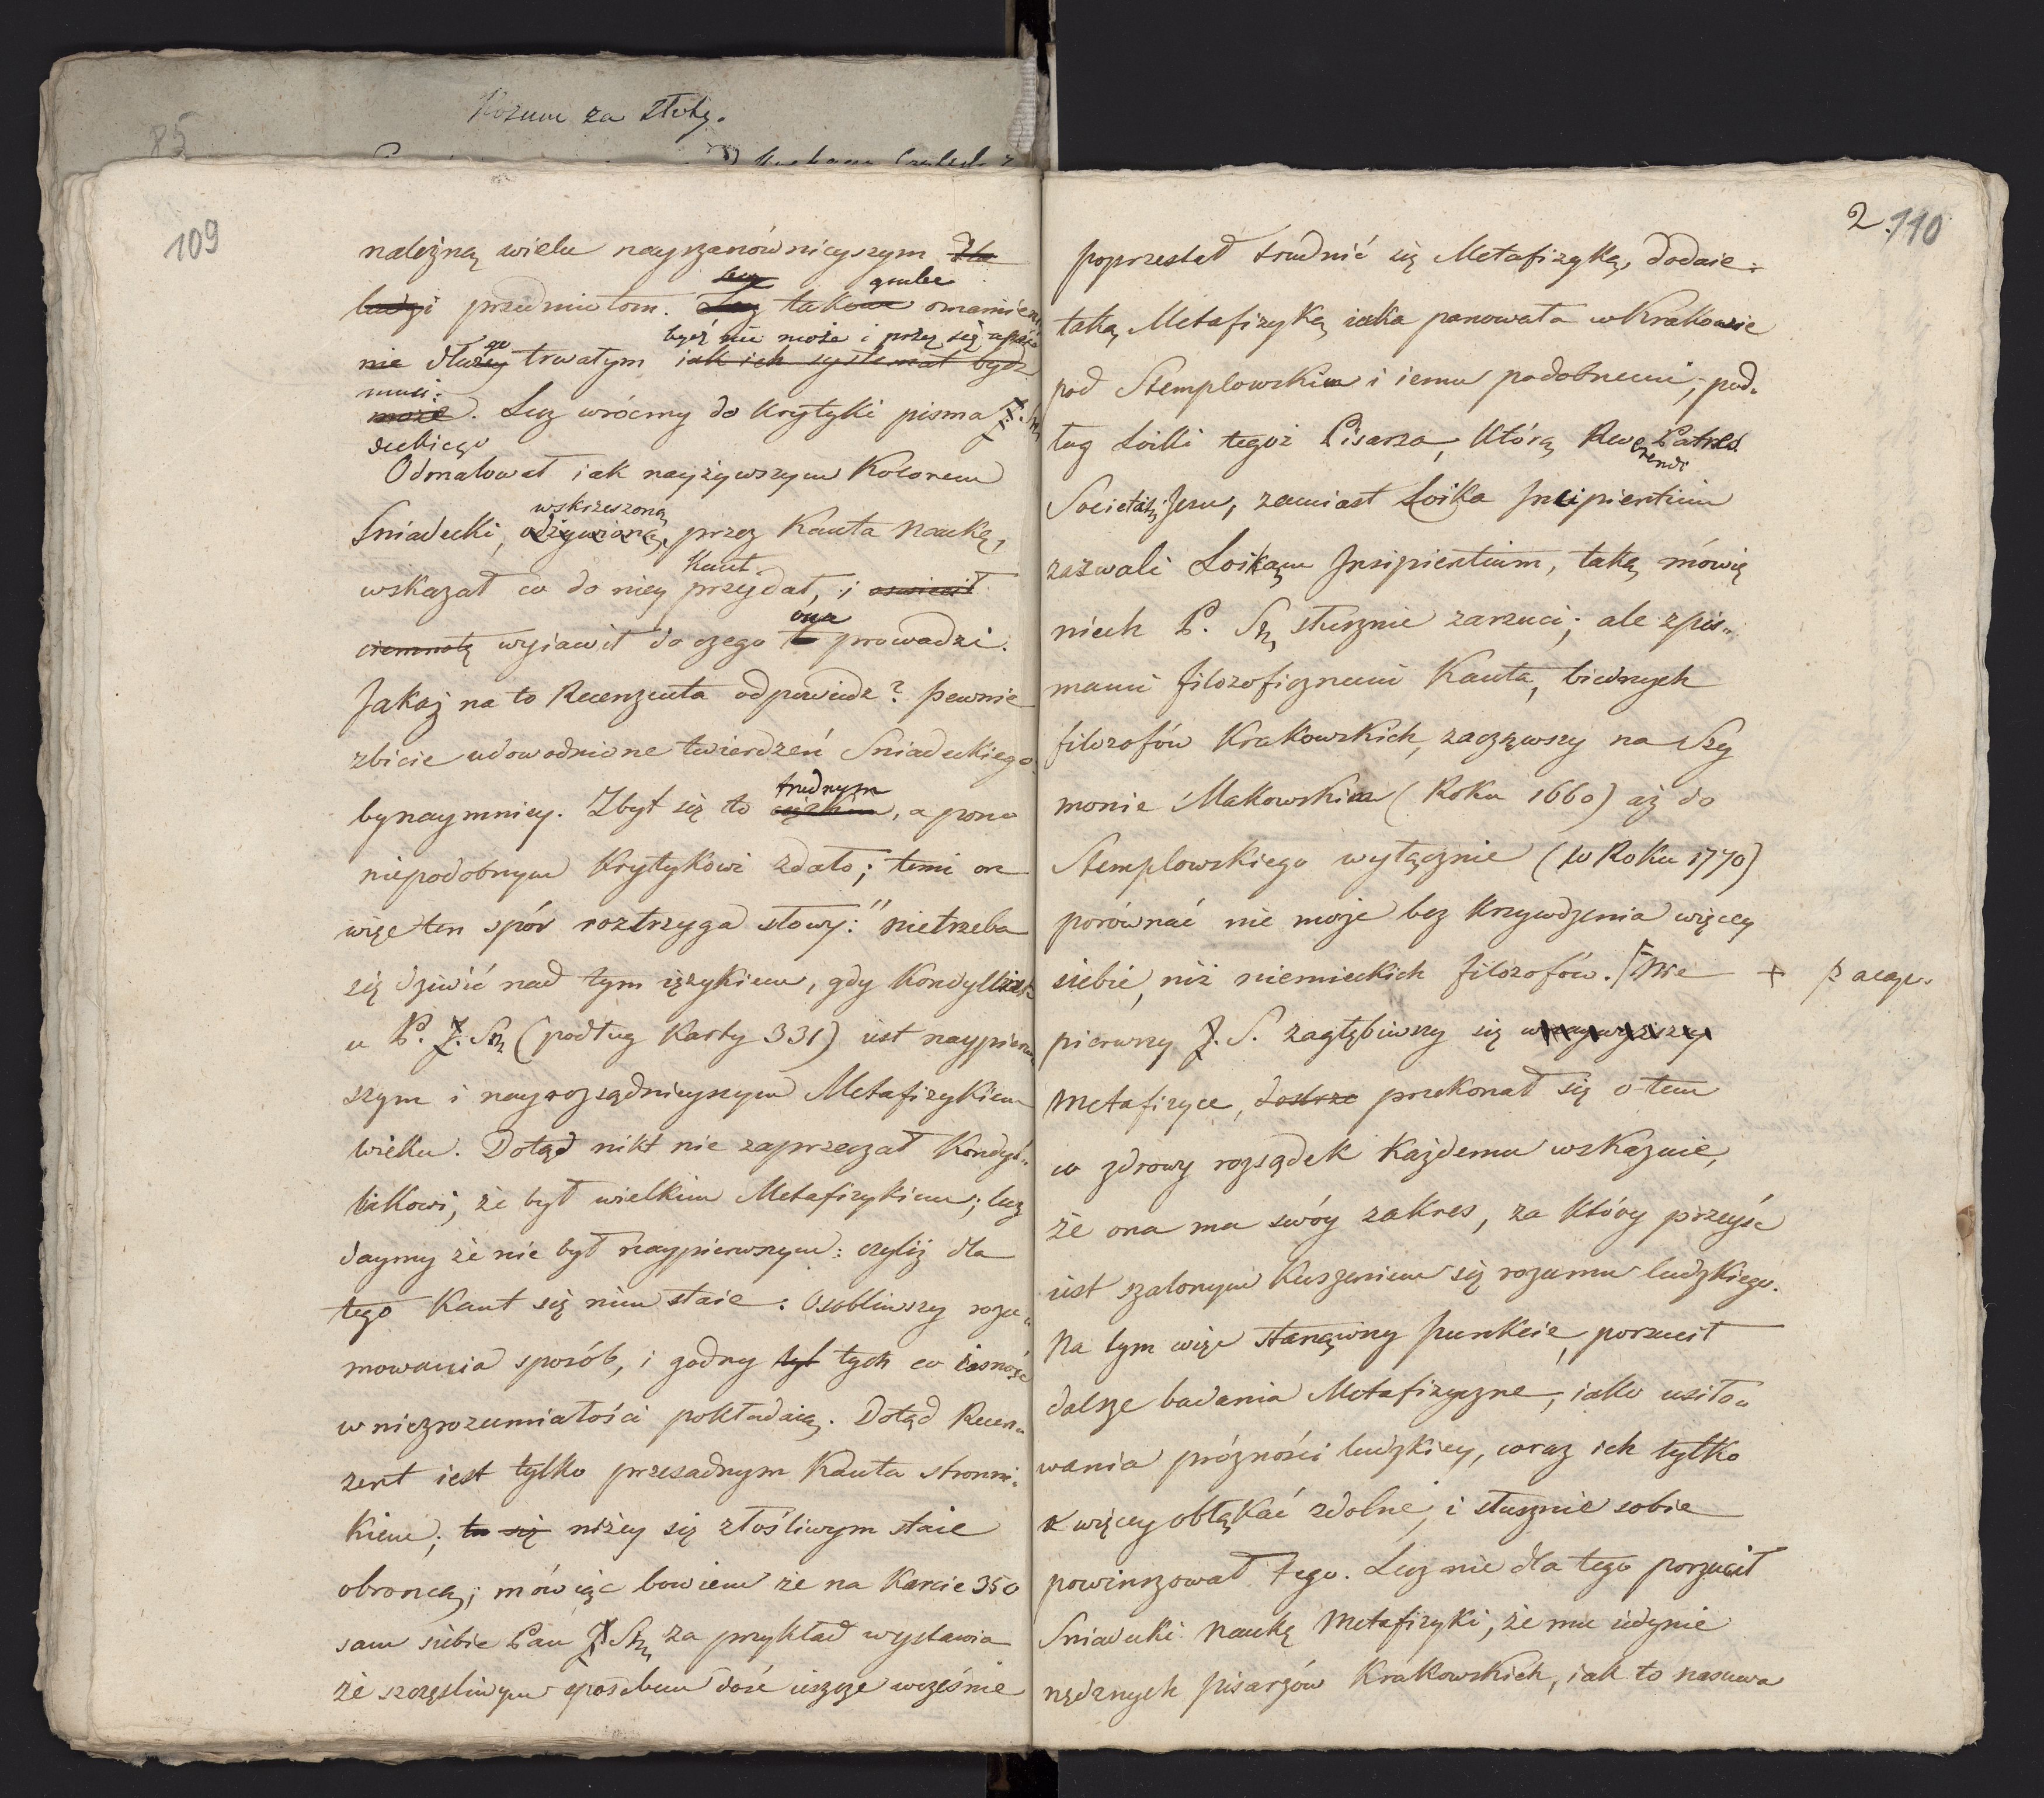 Rozum za
85
109
należną wielu nayszanównieyszym dla
lecz grube
ludzi przedmiotom. Lecz takowe omamienie
bydź nie może i przez się upaść
nie dłużey go trwałym iak ich systemat bydz
musi:
może. Lecz wróćmy do krytyki pisma J. Śn,
deckiego
Odmalował iak nayżywszym kolorem
wskrzeszoną
Sniadecki, odżywioną, przez Kanta naukę,
Kant
wskazał co do niey przydał, i oświecił
ona
ciemnotę wyiawił do czego to prowadzi.
Jakaż na to Recenzenta odpowiedz? pewnie
zbicie udowodnione twierdzeń Sniadeckiego
trudnym
bynaymniey. Zbyt się to ciężkim, a pono
niepodobnym Krytykowi zdało; temi on
więc ten spór roztrzyga słowy: "nietrzeba
się dziwić nad tym ięzykiem, gdy Kondylliak
u P. J. Śn, (podług Karty 331) iest naypierw
szym i nayrozsądnieyszym Metafizykiem
wieku. Dotąd nikt nie zaprzeczał Kondyl„
liakowi, że był wielkim Metafizykiem; lecz
daymy że nie był naypierwszym: czyliż dla
tego Kant się nim staie: Osobliwszy rozu„
mowania sposób, i godny tyl tych co iasność
w niezrozumiałości pokładaią. Dotąd Recen„
zent iest tylko przesadnym Kanta stronni„
kiem; tu się niżey się złośliwym staie
obrońcą; mówiąc bowiem że na Karcie 350
sam siebie Pan J. Śn, za przykład wystawia
że szczęśliwym sposobem dość ieszcze wcześnie
2. 110
poprzestał trudnić się Metafizyką, dodaie:
taką Metafizyką iaka panowała w Krakowie
pod Stemplowskim i iemu podobnemi; pod„
ług Loiki tegoż Pisarza, którą Reve Patres
rendi
Societatis Jesu, zamiast Loika Incipientium
zazwali Loikąm Insipientium, taką mówię
niech P. Śn, słusznie zarzuci; ale z pis„
mami filozoficznemi Kanta, biednych
filozofów Krakowskich, zacząwszy na Szy
monie Makowskim (Roku 1660) aż do
Stemplowskiego wyłącznie (w Roku 1770)
porównać nie może bez krzywdzenia więcey
siebie, niż niemieckich filozofów. Nie +
pierwszy J. S. zagłębiwszy się w naywyższey
Metafizyce, dostrze przekonał się o tem
co zdrowy rozsądek każdemu wskazuie,
że ona ma swóy zakres, za który przeyść
iest szalonym kuszeniem się rozumu ludzkiego.
Na tym więc stanąwszy punkcie, porzucił
dalsze badania Metafizyczne, iako usiło„
wania próżności ludzkiey, coraz ich tylko
więcey obłąkać zdolne, i słusznie sobie
powinszował tego. Lecz nie dla tego porzucił
Sniadecki naukę Metafizyki, że mu iedynie
nędznych pisarzów Krakowskich, iak to nasuwa